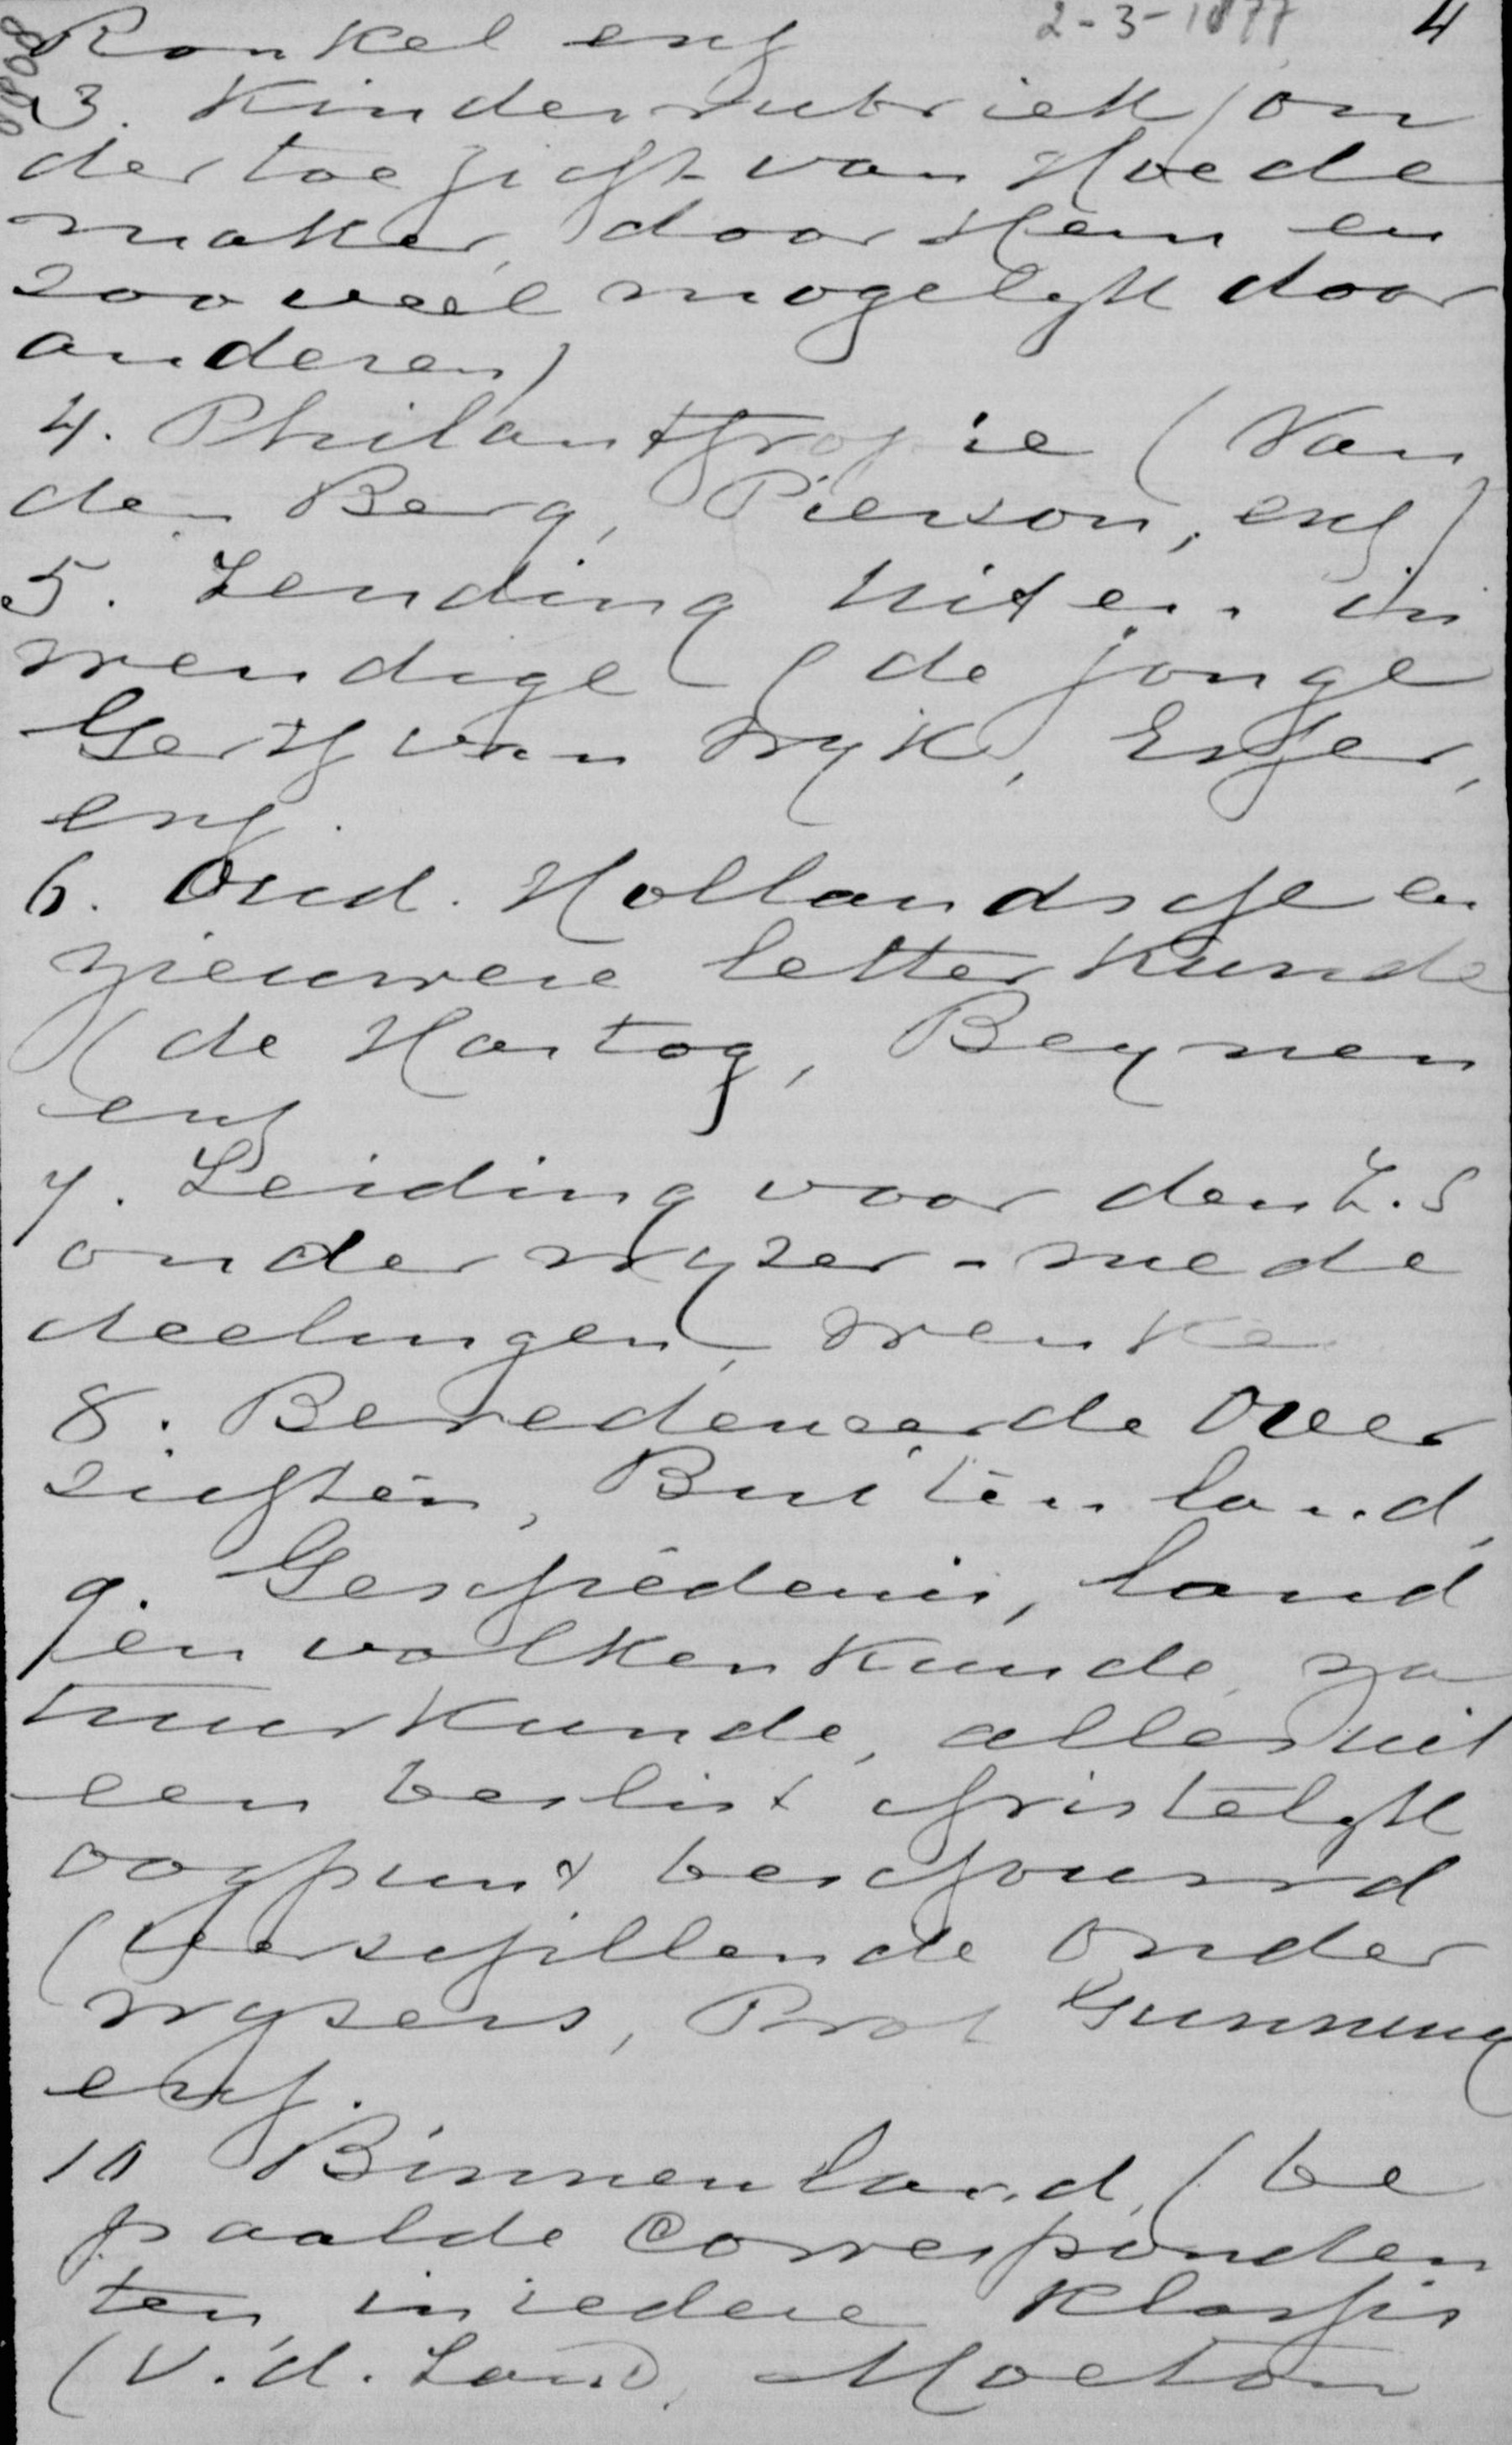 Ronkel enz 2-3-1877 4
3. Kinderrubriek (on
der toezicht van Hoede
maker, door Hem en
zooveel mogelyk door
anderen)
4. Philanthropie (Van
den Berg, Pierson, enz)
5. Zending uit en in
wendige (de jonge
Gerth van Wyk, Esser,
enz.
6. Oud. Hollandsche en
nieuwere letterkunde
(de Hartog, Beynen
enz
7. Leiding voor den Z.S
onderwyzer - mede
deelingen, Wenke
8. Beredeneerde Over
zichten, Buitenland,
9. Geschiedenis, land
en volkenkunde, na
tuurkunde, alles uit
een beslist christelyk
oogpunt beschouwd
(Verschillende onder
wyzers, Prof Gunning
enz.
10 Binnenland, (be
paalde Corresponden
ten, in iedere Klassis
(V. d. Land, Moeton